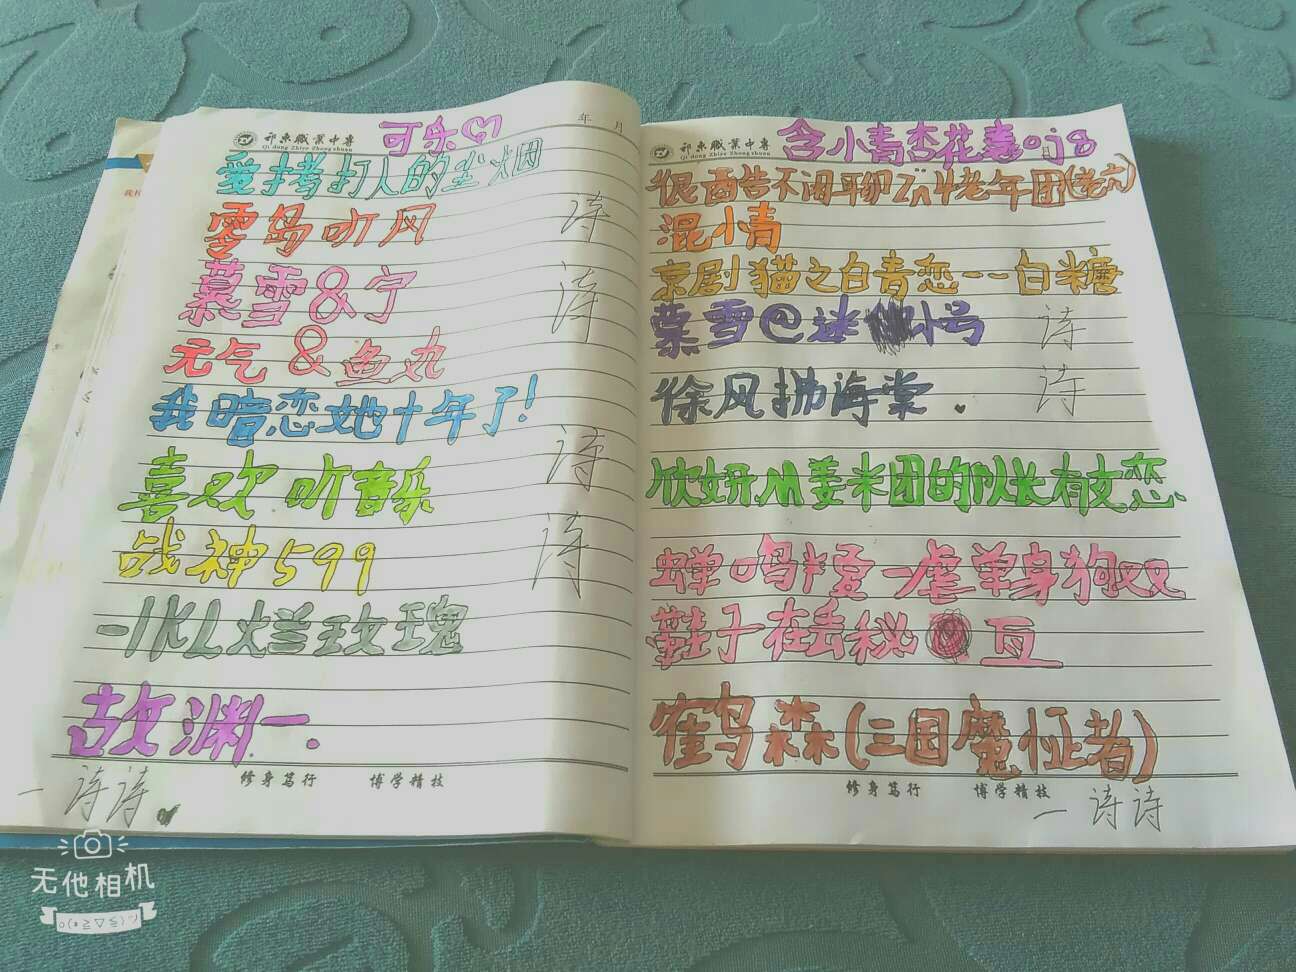 祁东职业中专
Qi dong Zhiye Zhongzhuan
可乐
年 月
爱拷打人的尘烟
零岛听风
诗
慕雪&宁
诗
元气&鱼丸
我暗恋她十年了!
诗
喜欢听音乐
战神599
诗
-1KL烂玫瑰
故渊一.
修身笃行 博学精技
一诗诗
祁东职业中专
Qi dong Zhiye Zhongzhuan
含小青杏花毒oj8
混小青
京剧猫之白青恋一一白糖
慕雪@迷小号
诗
徐风拂海棠.
诗
欣妍M姜米团的队长有文恋
蝉鸣半夏一虐单身狗双
鞋子在丢秘 亘
鹤森(三国魔怔者)
修身笃行 博学精技
一诗诗
无他相机